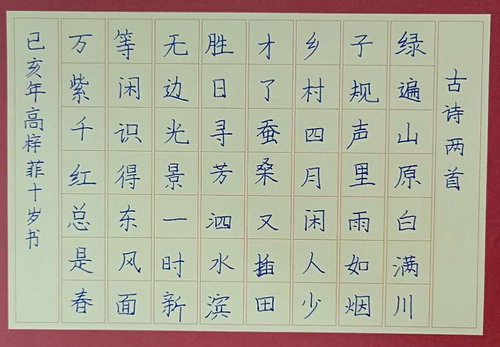 古诗两首
绿遍山原白满川
子规声里雨如烟
乡村四月闲人少
才了蚕桑又插田
胜日寻芳泗水滨
无边光景一时新
等闲识得东风面
万紫千红总是春
己亥年高梓菲十岁书